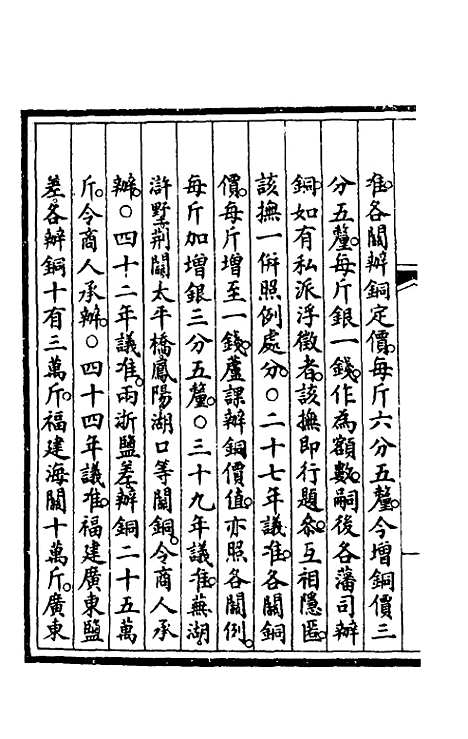 准。各關辦銅定價。每斤六分五釐。今增銅價三
分五釐。每斤銀一錢。作爲額數。嗣後各藩司辦
銅。如有私派浮徵者。該撫即行題叅。互相隱匿。
該撫一併照例處分。○二十七年議准。各關銅
價。每斤增至一錢。蘆課辦銅價值。亦照各關例。
每斤加增銀三分五釐。○三十九年議准。蕪湖
滸墅荆關太平橋鳳陽湖口等關銅。令商人承
辦。○四十二年議准。兩浙鹽差。辦銅二十五萬
斤。令商人承辦。○四十四年議准。福建廣東鹽
差。各辦銅十有三萬斤。福建海關十萬斤。廣東